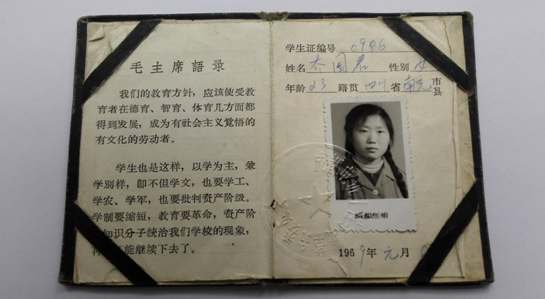 毛主席語录
我们的教育方针，应该使受教
育者在德育、智育、体育几方面都
得到发展，成为有社会主义覺悟的
有文化的劳动者。
学生也是这样，以学为主，兼
学别样，即不但学文，也要学工、
学农、学军，也要批判资产阶级。
学制要縮短，教育要革命，资产阶
知识分子统治我们学校的现象，
能继续下去了。
学生证編号 6906
姓名 国君 性别 女
年龄 23 籍贯 四川 省 南充 市县
1969年元月